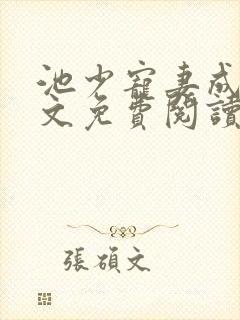 池少寵妻成
文免費閱讀
張碩文